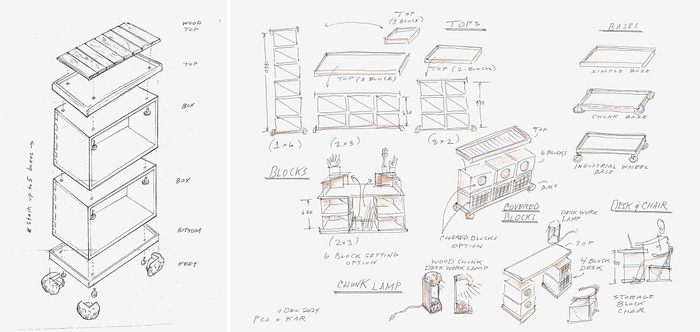 WOOD
TOP
TOP
BOX
BOX
BOTTOM
FEET
* stack up to 5 boxes →
TOP
(1 BLOCK)
TOPS
BASES
TOP (3 BLOCK)
TOP (2 BLOCKS)
SIMPLE BASE
CHUNK BASE
INDUSTRIAL WHEEL
BASE
(1x6)
(2x3)
(3x2)
BLOCKS
TOP
6 BLOCKS
BASE
650
(2x3)
6 BLOCK SETTING
OPTION
COVERED
BLOCKS
COVERED BLOCKS
OPTION
DESK WORK
LAMP
DESK & CHAIR
TOP
4 BLOCK
DESK
STORAGE
BLOCK
CHAIR
WOOD CHUNK
DESK WORK LAMP
CHUNK LAMP
11 DEC 2024
PCO x KAR